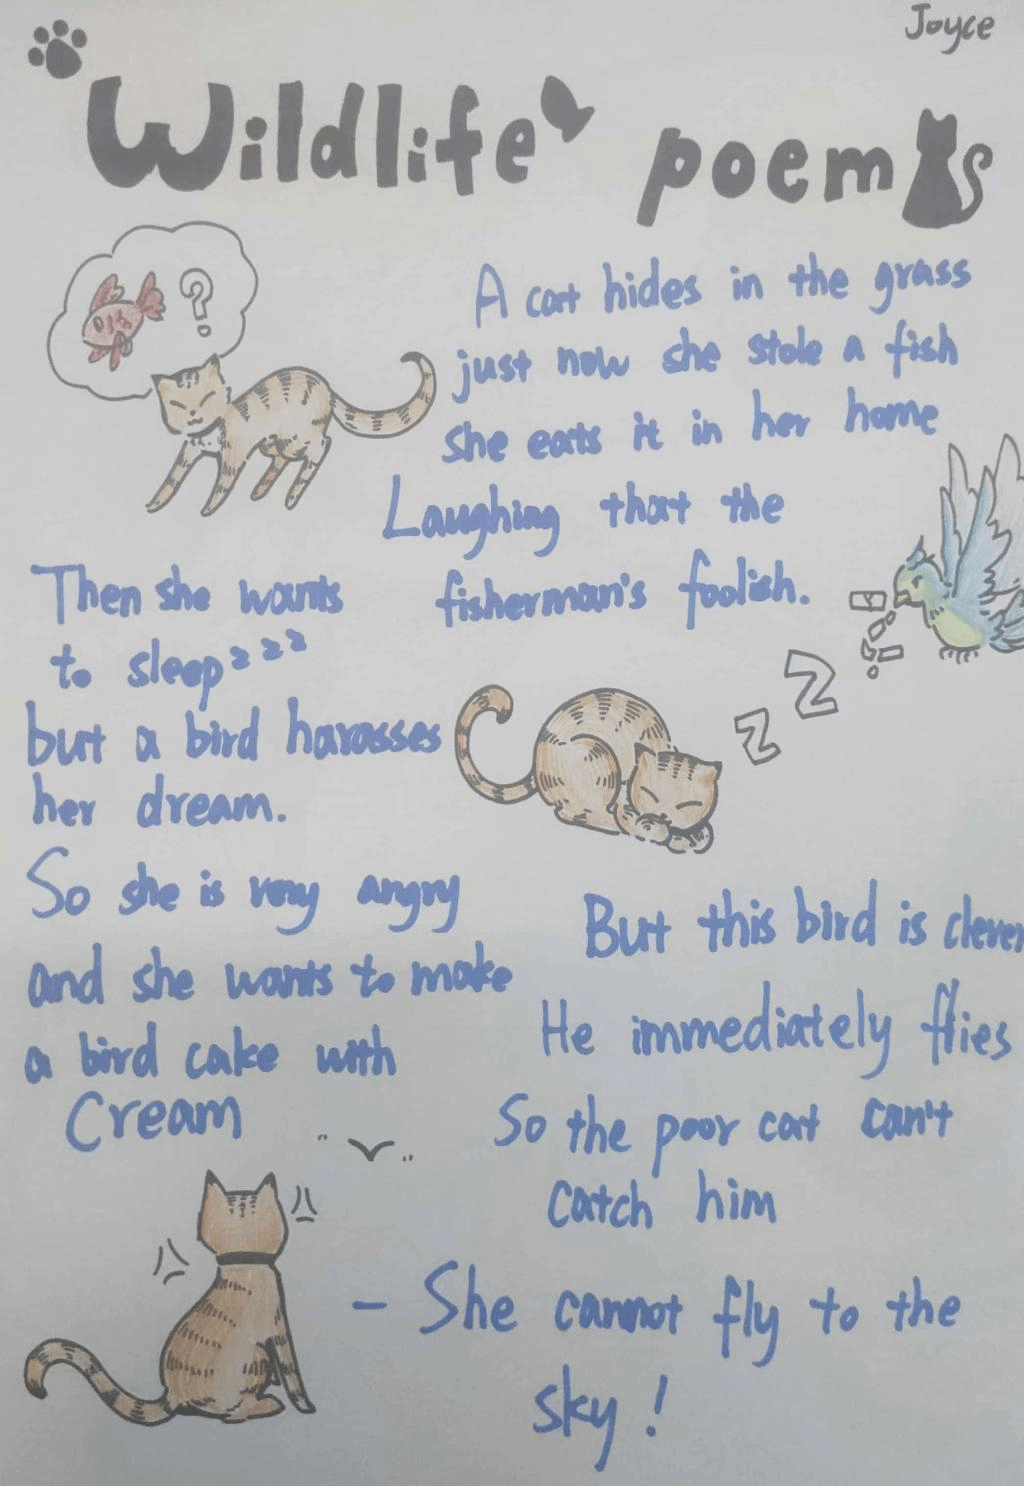 Joyce
Wildlife poems
A cat hides in the grass
just now she stole a fish
she eats it in her home
Laughing that the
fisherman's foolish.
Then she wants
to sleepzzz
but a bird harasses
her dream.
So she is very angry
and she wants to make
a bird cake with
Cream
But this bird is clever
He immediately flies
So the poor cat can't
catch him
- She cannot fly to the
sky!
?
z Z